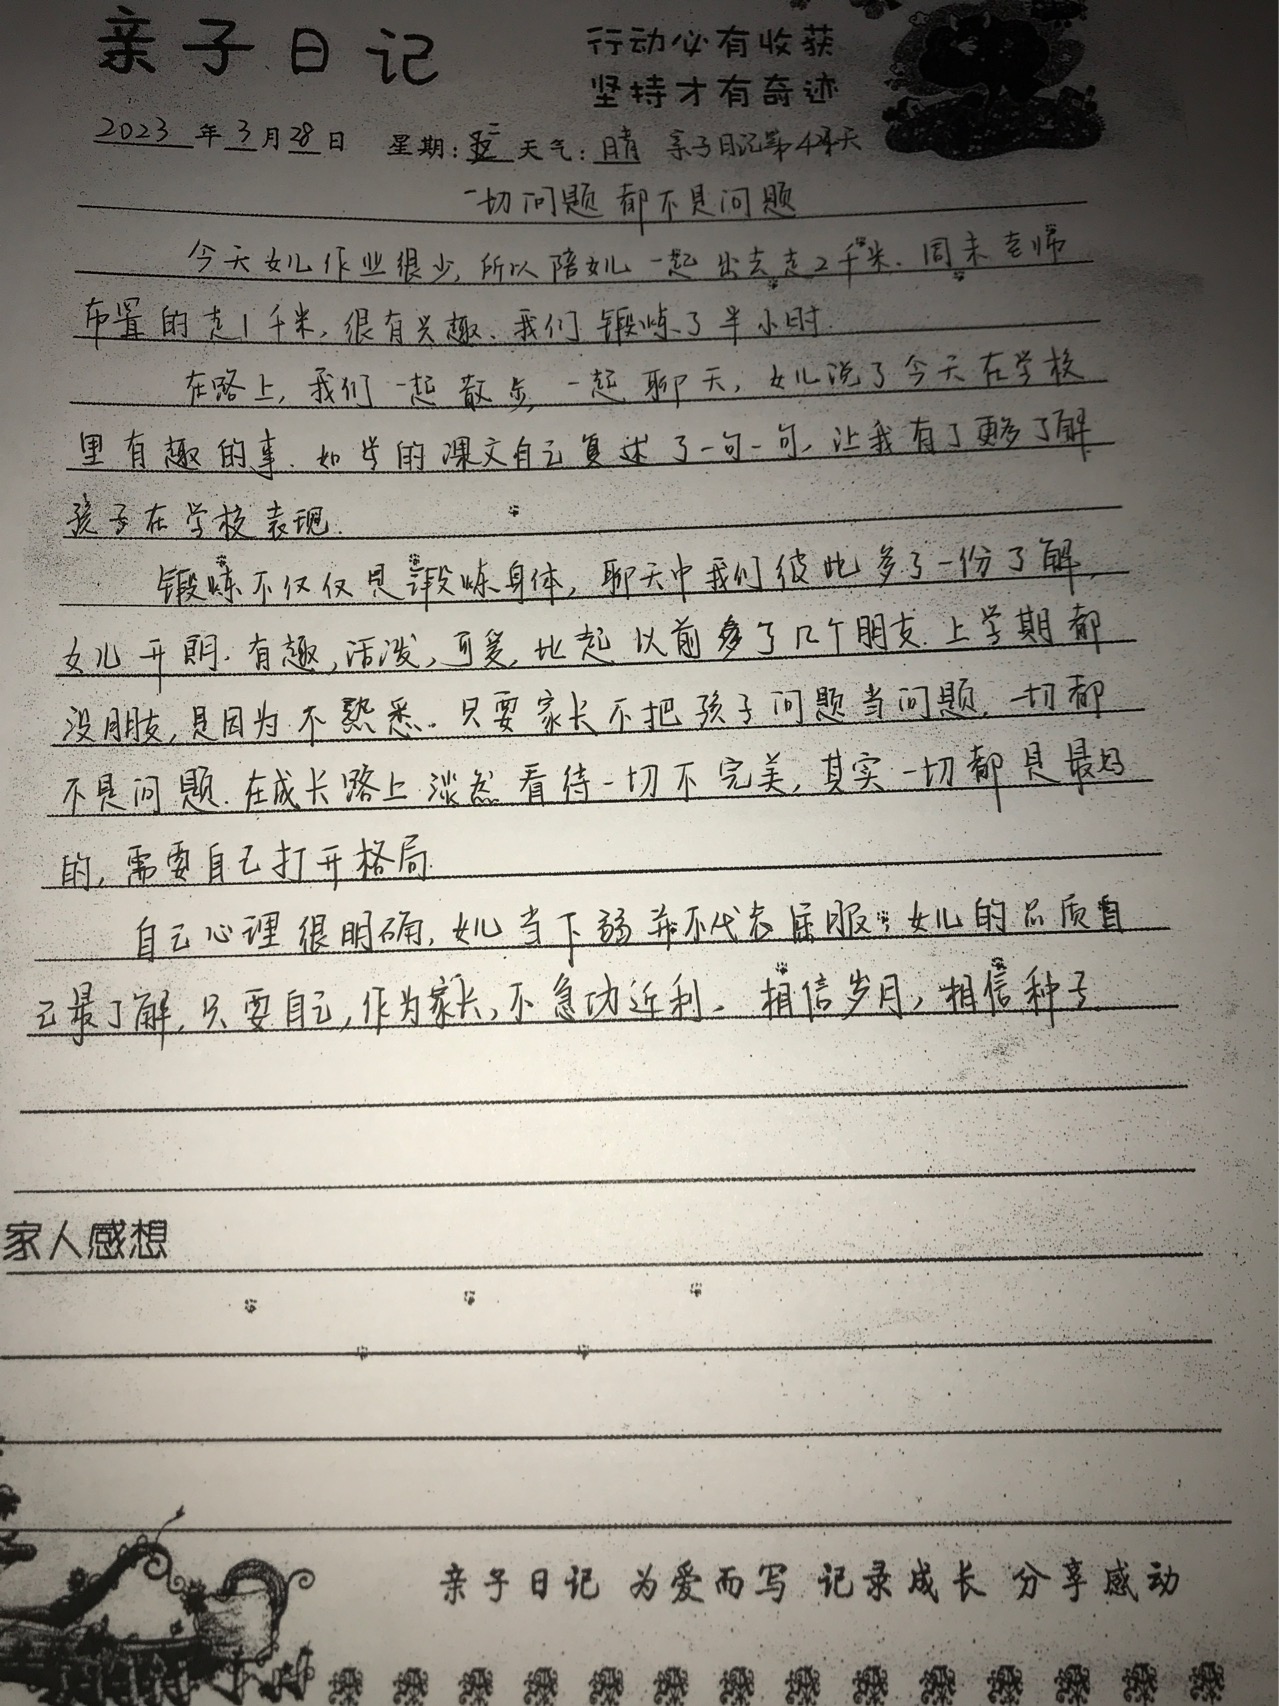 亲子日记
行动必有收获
坚持才有奇迹
2023年3月28日 星期:二 天气:晴 亲子日记第4天
一切问题都不是问题
今天女儿作业很少,所以陪女儿一起出去走2千米.周末老师
布置的走1千米,很有兴趣.我们锻炼了半小时.
在路上,我们一起散步,一起聊天,女儿说了今天在学校
里有趣的事.如学的课文自己复述了一句一句,让我有了更多了解
孩子在学校表现.
锻炼不仅仅是锻炼身体,聊天中我们彼此多了一份了解,
女儿开朗.有趣,活泼,可爱,比起以前多了几个朋友.上学期都
没朋友,是因为不熟悉.只要家长不把孩子问题当问题,一切都
不是问题.在成长路上淡然看待一切不完美,其实一切都是最好
的,需要自己打开格局.
自己心理很明确,女儿当下弱并不代表屈服.女儿的品质自
己最了解,只要自己,作为家长,不急功近利.相信岁月,相信种子.
家人感想
亲子日记 为爱而写 记录成长 分享感动